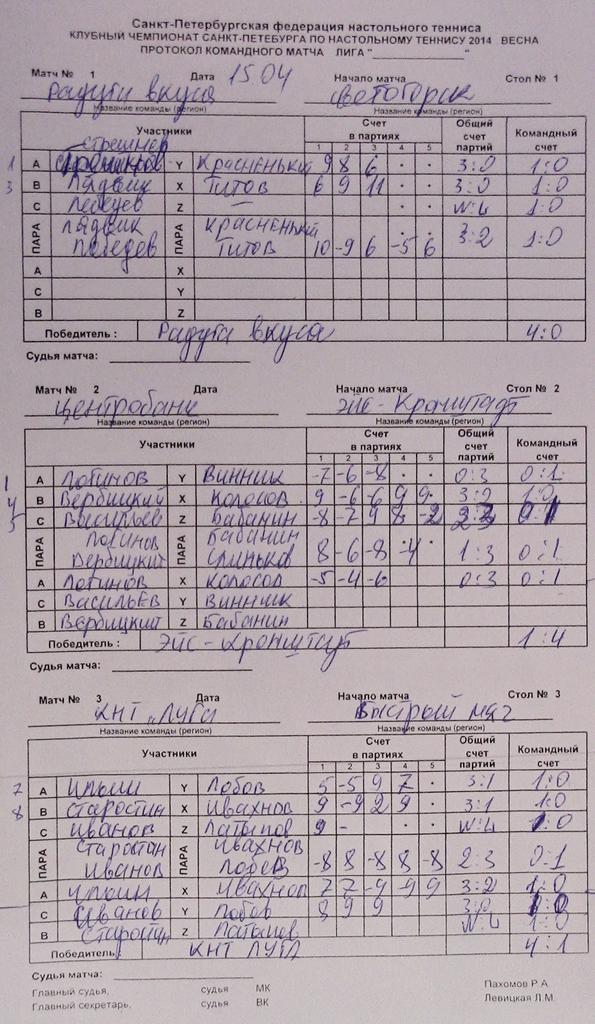 Санкт-Петербургская федерация настольного тенниса
КЛУБНЫЙ ЧЕМПИОНАТ САНКТ-ПЕТЕБУРГА ПО НАСТОЛЬНОМУ ТЕННИСУ 2014 ВЕСНА
ПРОТОКОЛ КОМАНДНОГО МАТЧА ЛИГА "____________"
Матч № 1 Дата 15.04 Начало матча Стол № 1
Радуга вкуса Светогорск
Название команды (регион) Название команды (регион)
Участники Счет в партиях Общий счет партий Командный счет
1 2 3 4 5
1 A Стрешнев Y Красненький 9 8 6 · · 3:0 1:0
3 B Лядвик X Титов 6 9 11 · · 3:0 1:0
C Лебедев Z — W:L 1:0
ПАРА Лядвик Лебедев ПАРА Красненький Титов 10 -9 6 -5 6 3:2 1:0
A X
C Y
B Z
Победитель : Радуга вкуса 4:0
Судья матча:
Матч № 2 Дата Начало матча Стол № 2
Центробанк Эйс-Кронштадт
Название команды (регион) Название команды (регион)
Участники Счет в партиях Общий счет партий Командный счет
1 2 3 4 5
1 A Логинов Y Винник -7 -6 -8 · · 0:3 0:1
4 B Вербицкий X Колосов 9 -6 -6 9 9 3:2 1:0
5 C Васильев Z Бабанин -8 -7 9 8 -2 2:3 0:1
ПАРА Логинов Вербицкий ПАРА Бабанин Слиньков 8 -6 -8 -4 1:3 0:1
A Логинов X Колосов -5 -4 -6 0:3 0:1
C Васильев Y Винник
B Вербицкий Z Бабанин
Победитель : Эйс-Кронштадт 1:4
Судья матча:
Матч № 3 Дата Начало матча Стол № 3
КНТ „Луга Быстрый мяч
Название команды (регион) Название команды (регион)
Участники Счет в партиях Общий счет партий Командный счет
1 2 3 4 5
7 A Y Лобов 5 -5 9 7 · 3:1 1:0
8 B Старостин X Ивахнов 9 -9 2 9 · 3:1 1:0
C Иванов Z Латыпов 9 - · · W:L 1:0
ПАРА Старостин Иванов ПАРА Ивахнов Лобов -8 8 -8 8 -8 2:3 0:1
A X Ивахнов 7 7 -9 -9 9 3:2 1:0
C Иванов Y Лобов 8 9 9 3:0 1:0
B Старостин Z Латыпов W:L 1:0
Победитель: КНТ ЛУГА 4:1
Судья матча:
Главный судья, судья МК Пахомов Р.А.
Главный секретарь, судья ВК Левицкая Л.М.